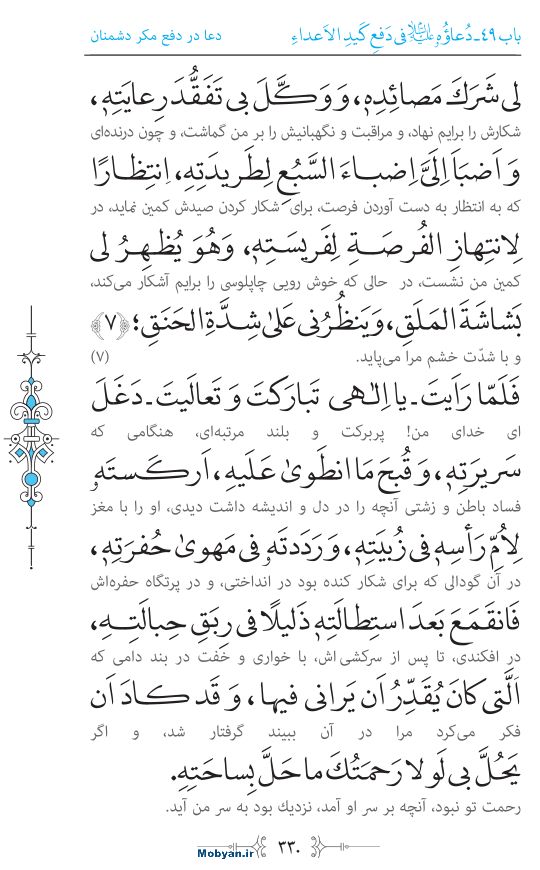 باب ۴۹ـ دُعاؤُهُ علیه‌السلام فی دَفعِ کَیدِ الاَعداءِ دعا در دفع مکر دشمنان
لی شَرَكَ مَصائِدِهِ، وَ وَكَّلَ بی تَفَقُّدَ رِعایَتِهِ،
شکارش را برایم نهاد، و مراقبت و نگهبانیش را بر من گماشت، و چون درنده‌ای
وَ اَضبَاَ اِلَیَّ اِضباءَ السَّبُعِ لِطَریدَتِهِ، اِنتِظارًا
که به انتظار به دست آوردن فرصت، برای شکار کردن صیدش کمین نماید، در
لِانتِهازِ الفُرصَةِ لِفَریسَتِهِ، وَهُوَ یُظهِرُ لی
کمین من نشست، در حالی که خوش رویی چاپلوسی را برایم آشکار می‌کند،
بَشاشَةَ المَلَقِ، وَیَنظُرُنی عَلیٰ شِدَّةِ الحَنَقِ؛ ﴿۷﴾
و با شدّت خشم مرا می‌پاید. (۷)
فَلَمّا رَاَیتَ ـ یا اِلٰهی تَبارَكتَ وَ تَعالَیتَ ـ دَغَلَ
ای خدای من! پربرکت و بلند مرتبه‌ای، هنگامی که
سَریرَتِهِ، وَ قُبحَ مَا انطَویٰ عَلَیهِ، اَركَستَهُ
فساد باطن و زشتی آنچه را در دل و اندیشه داشت دیدی، او را با مغز
لِاُمِّ رَأسِهِ فی زُبیَتِهِ، وَ رَدَدتَهُ فی مَهویٰ حُفرَتِهِ،
در آن گودالی که برای شکار کنده بود در انداختی، و در پرتگاه حفره‌اش
فَانقَمَعَ بَعدَ استِطالَتِهِ ذَلیلًا فی رِبَقِ حِبالَتِهِ،
در افکندی، تا پس از سرکشی اش، با خواری و خفت در بند دامی که
اَلَّتی كانَ یُقَدِّرُ اَن یَرانی فیها، وَ قَد كادَ اَن
فکر می‌کرد مرا در آن ببیند گرفتار شد، و اگر
یَحُلَّ بی لَو لا رَحمَتُكَ ما حَلَّ بِساحَتِهِ.
رحمت تو نبود، آنچه بر سر او آمد، نزدیك بود به سر من آید.
۳۳۰
Mobyan.ir